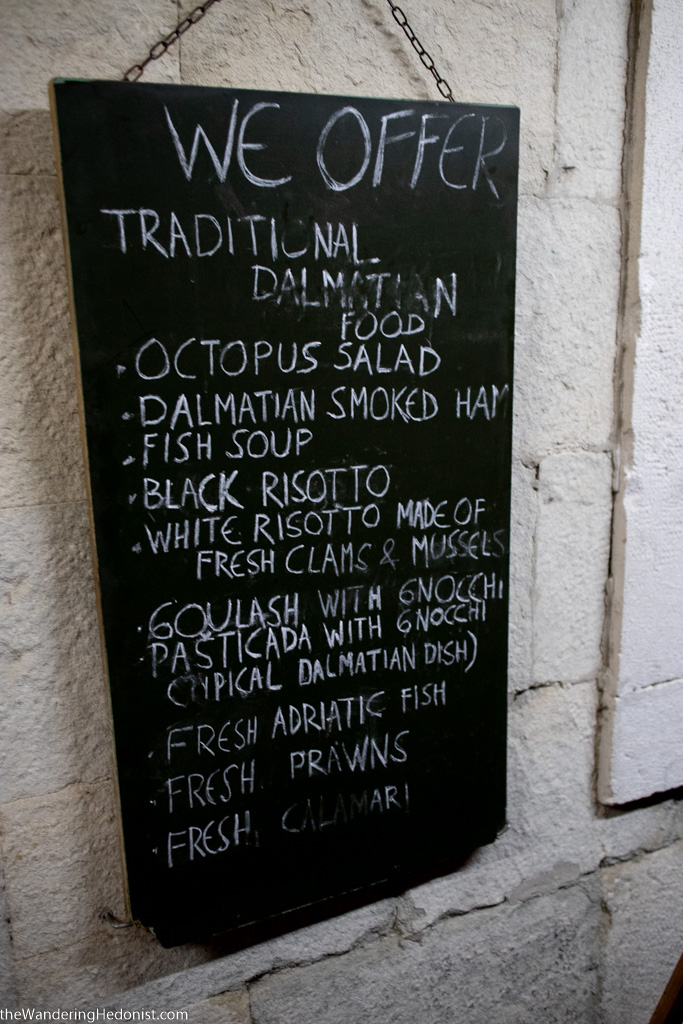 WE OFFER
TRADITIONAL
DALMATIAN
FOOD
. OCTOPUS SALAD
. DALMATIAN SMOKED HAM
. FISH SOUP
. BLACK RISOTTO
. WHITE RISOTTO MADE OF
FRESH CLAMS & MUSSELS
. GOULASH WITH GNOCCHI
. PASTICADA WITH GNOCCHI
(TYPICAL DALMATIAN DISH)
. FRESH ADRIATIC FISH
. FRESH PRAWNS
. FRESH CALAMARI
theWanderingHedonist.com